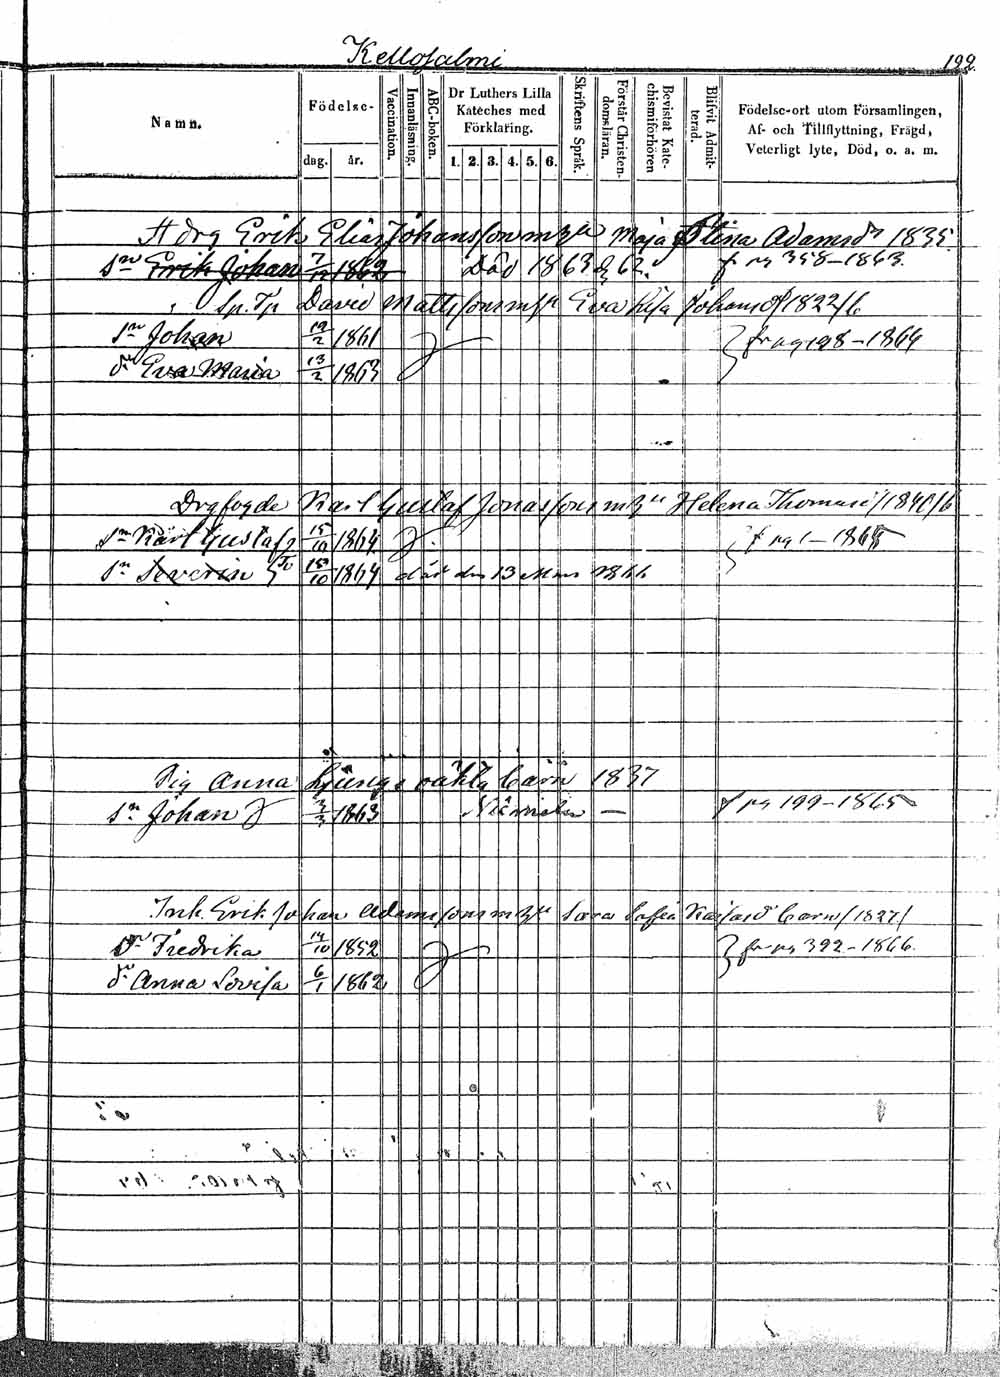 Kellosalmi 199.
Namn.
Födelse-
dag. år.
Vaccination.
Innanläsning.
ABC-boken.
Dr Luthers Lilla
Kateches med
Förklaring.
1. 2. 3. 4. 5. 6.
Skriftens Språk.
Förstår Christen-
domsläran.
Bevistat Kate-
chismiförhören
Blifvit Admit-
terad.
Födelse-ort utom Församlingen,
Af- och Tillflyttning, Frägd,
Veterligt lyte, Död, o. a. m.
drg Erik Elias Johansson Maja Stina Adamsdr 1835.
sn Erik Johan 7/12 1862 Död 1863 f pg 358–1863.
David Mattsson Eva Lisa Johansdr 1822/6
sn Johan 19/2 1861 fr pg 198–1864
dr Eva Maria 13/2 1863
Drgfogde Karl Gustaf Jonasson Helena Thomasd
sn Karl Gustaf 15/10 1864 f pg 1–1865
sn Severin 15/10 1864 död den 13 Mars 1866
Pig Anna Ljungs oäkta barn 1837
sn Johan 3/3 1863 f pg 199–1865
Inh. Erik Johan Adamsson Sara Sofia barn /1827/
dr Fredrika 14/10 1852 fr pg 392–1866.
dr Anna Lovisa 6/1 1862